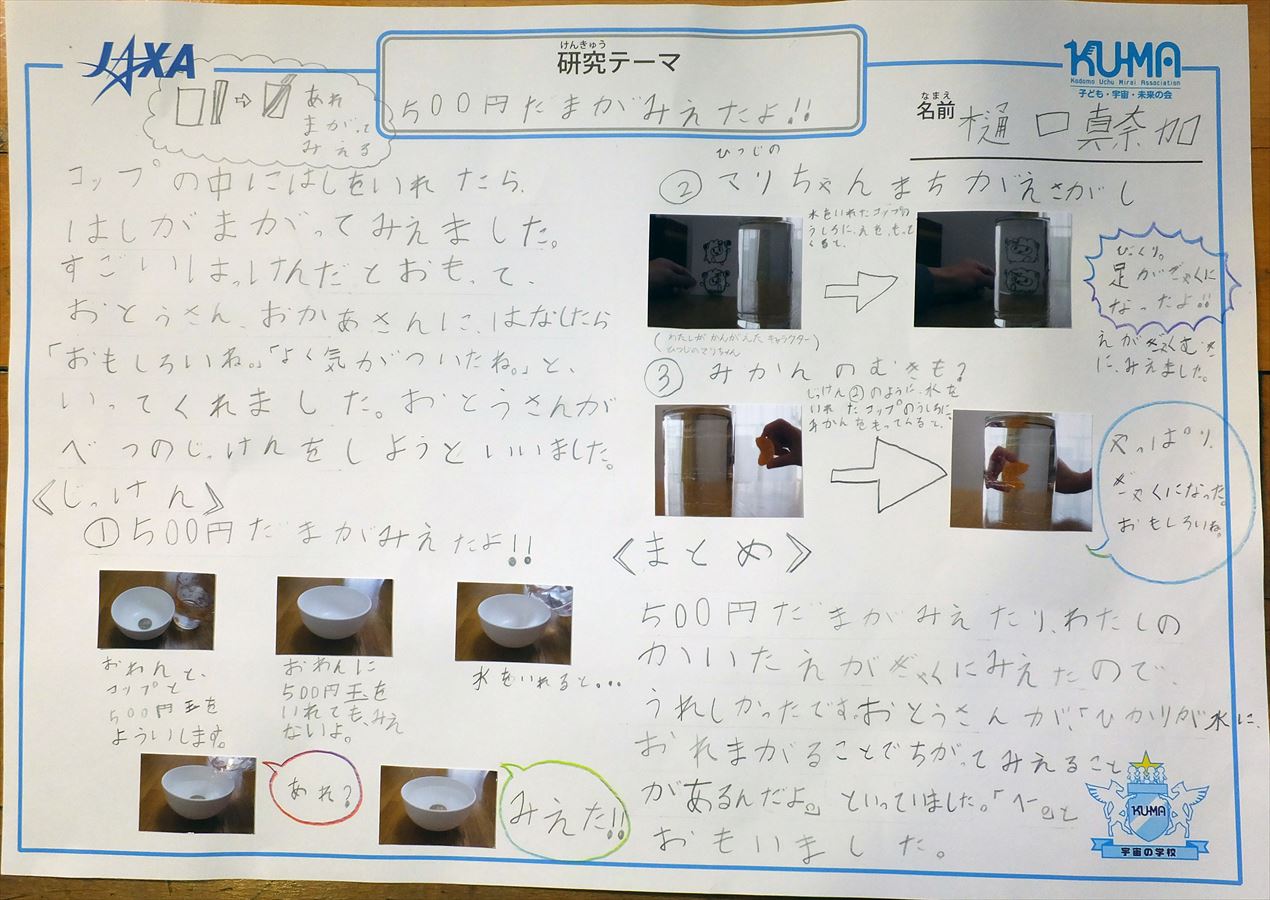 JAXA
けんきゅう
研究テーマ
500円だまがみえたよ!!
KU-MA
Kodomo Uchu Mirai Association
子ども・宇宙・未来の会
なまえ
名前
樋口真奈加
あれ
まがって
みえる
コップの中にはしをいれたら、
はしがまがってみえました。
すごいはっけんだとおもって、
おとうさん、おかあさんに、はなしたら
「おもしろいね。」「よく気がついたね。」と、
いってくれました。おとうさんが
べつのじっけんをしようといいました。
《じっけん》
①500円だまがみえたよ!!
おわんと、
コップと
500円玉を
よういします。
おわんに
500円玉を
いれても、みえ
ないよ。
水をいれると...
あれ?
みえた!!
ひつじの
②マリちゃんまちがえさがし
水をいれたコップの
うしろに、えを、もって
くると、
(わたしがかんがえたキャラクター
ひつじのマリちゃん)
びっくり。
足がぎゃくに
なったよ!!
えがぎゃくむき
に、みえました。
③みかんのむきも?
じっけん②のように、水を
いれたコップのうしろに、
みかんをもってくると、
やっぱり、
ぎゃくになった。
おもしろいね。
《まとめ》
500円だまがみえたり、わたしの
かいたえがぎゃくにみえたので、
うれしかったです。おとうさんが、「ひかりが水に、
おれまがることでちがってみえること
があるんだよ。」といっていました。「へー。」と
おもいました。
KU-MA
宇宙の学校